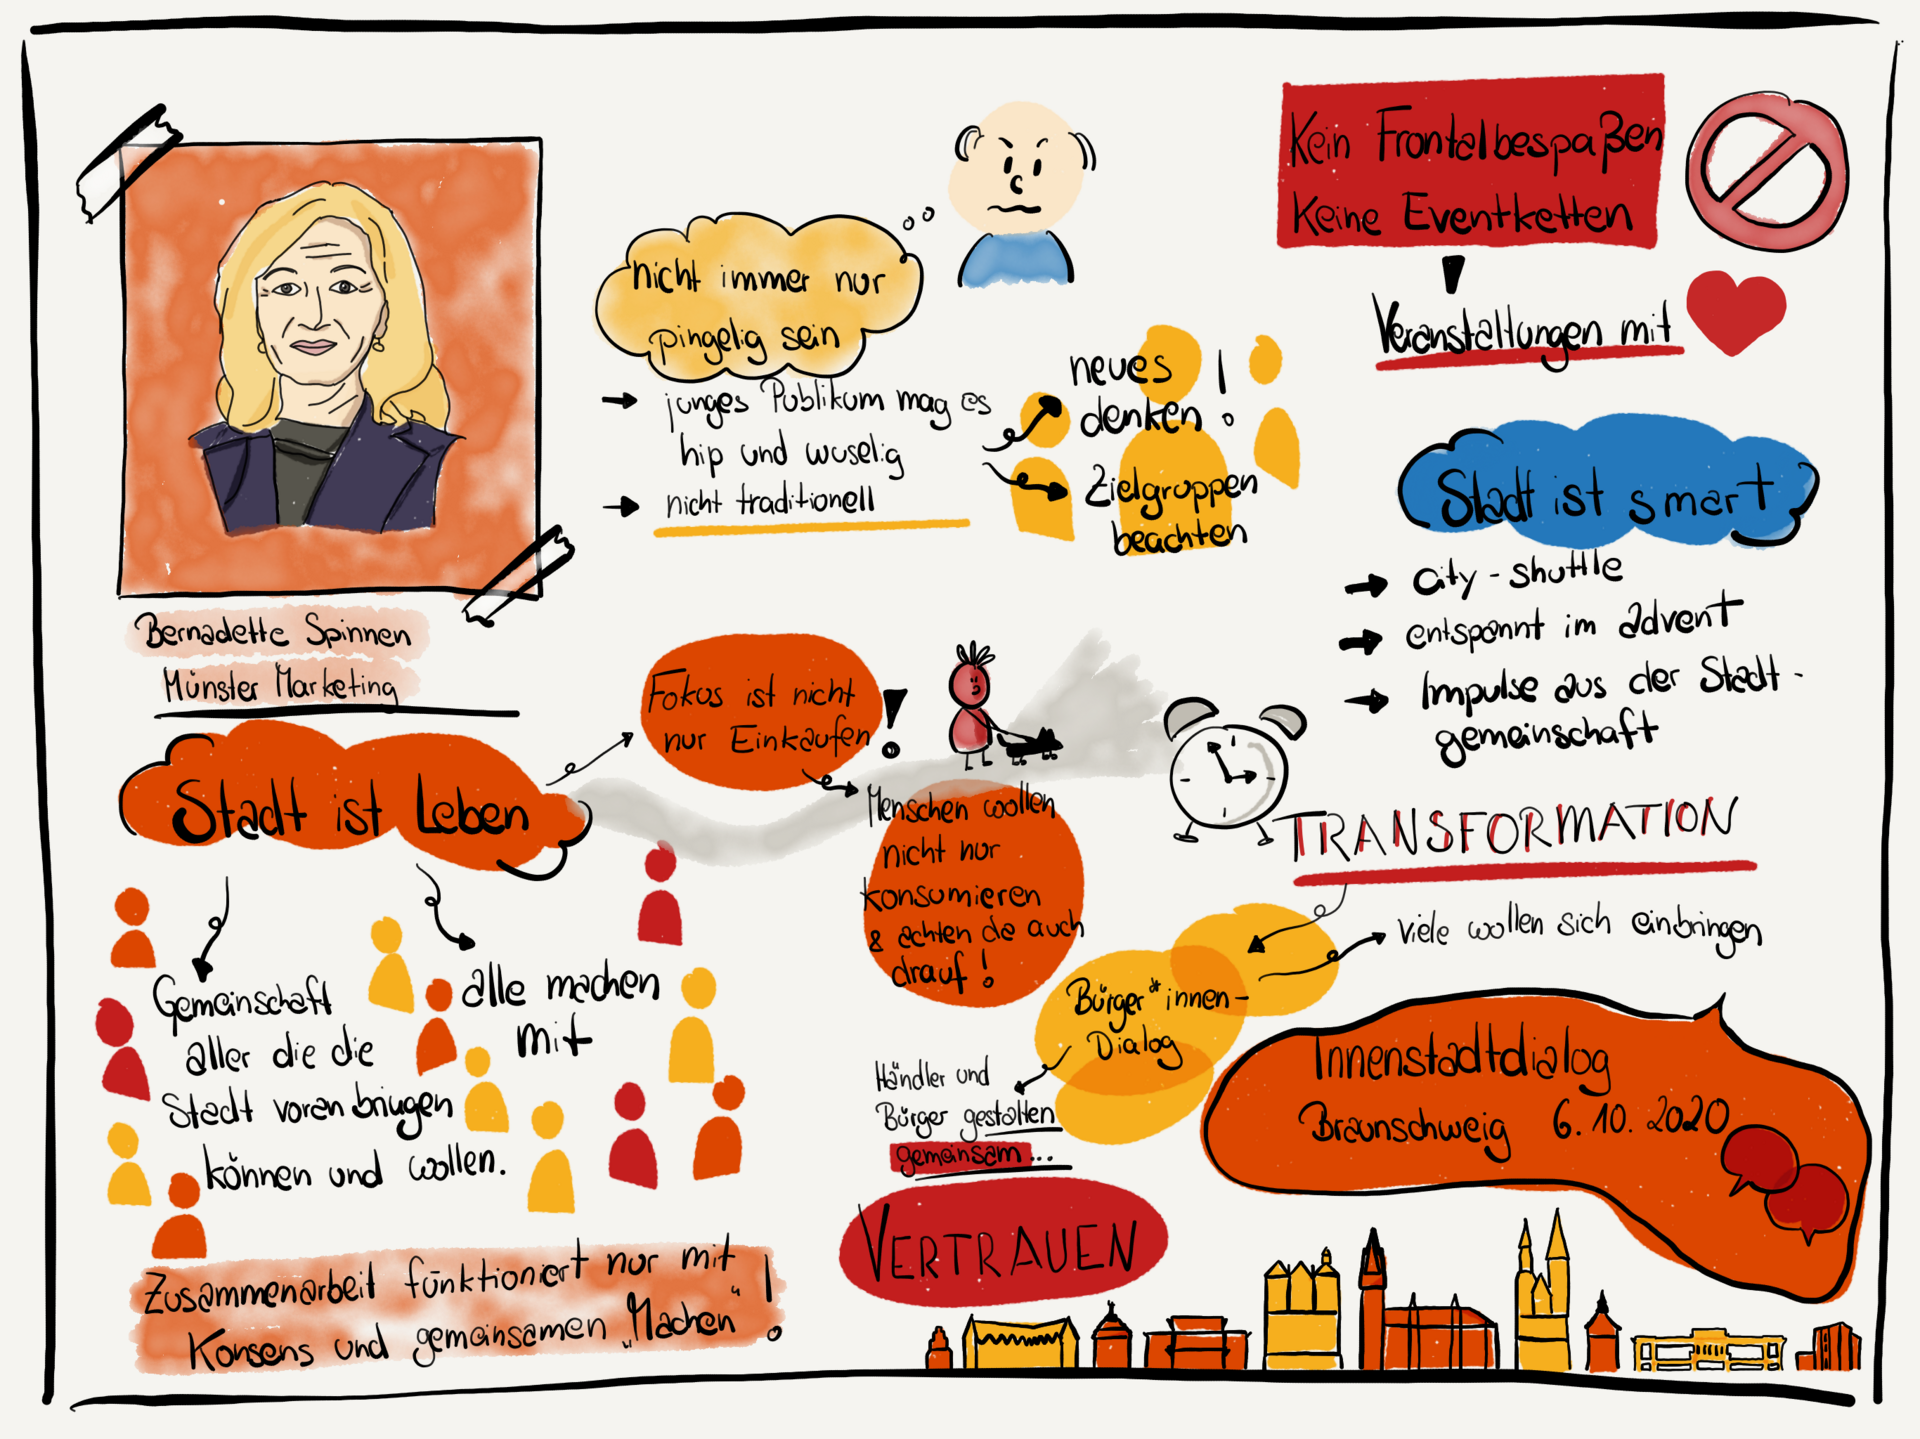 Bernadette Spinnen
Münster Marketing
nicht immer nur
pingelig sein
junges Publikum mag es
hip und wuselig
nicht traditionell
neues
denken!
Zielgruppen
beachten
Kein Frontalbespaßen
Keine Eventketten
Veranstaltungen mit
Stadt ist smart
city-shuttle
entspannt im advent
Impulse aus der Stadt-
gemeinschaft
Stadt ist Leben
Fokus ist nicht
nur Einkaufen!
Menschen wollen
nicht nur
konsumieren
& achten da auch
drauf!
Gemeinschaft
aller die die
Stadt voranbringen
können und wollen.
alle machen
mit
Zusammenarbeit funktioniert nur mit
Konsens und gemeinsamen „Machen“!
TRANSFORMATION
viele wollen sich einbringen
Bürger*innen-
Dialog
Händler und
Bürger gestalten
gemeinsam...
VERTRAUEN
Innenstadtdialog
Braunschweig 6.10.2020